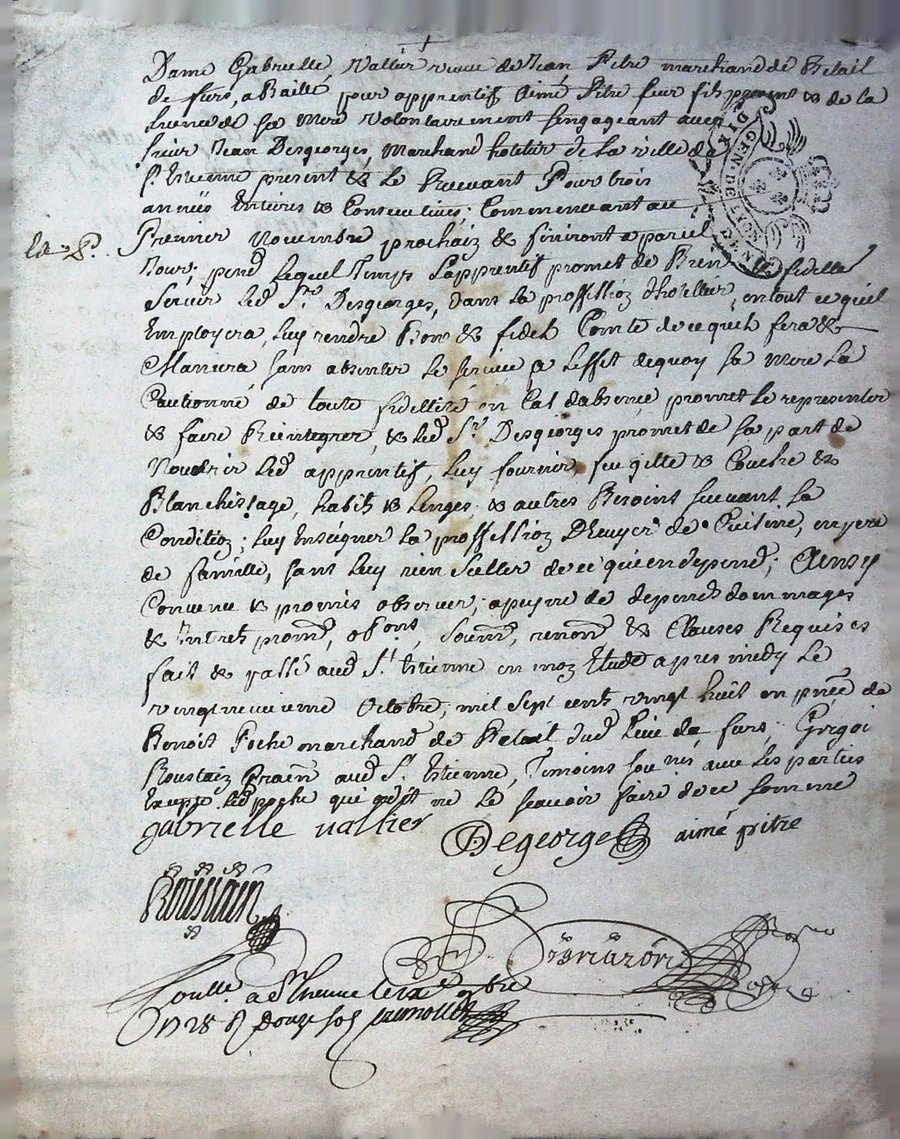 Dame Gabrielle Vallier veuve de Jean Pitre marchand de Betail
de furs, a Baillé pour apprentif Aimé Pitre sieur fils present & de la
licence de sa mere volontairement sengageant avecq
sieur Jean Desgeorges, Marchand hotelier de la ville de
St. Etienne present & le Recevant Pour trois
années Entieres & Consecutives; Commencant au
Premier Novembre prochaiz & finiront a pareil
Jour; pend lequel Temps Lapprentif promet de Bien & fidelle
Servir led Sr. Desgeorges, dans la proffession dhotellier, en tout ce quil
Employera, luy rendre Bon & fidele Comte de ce quil fera &
Maniera sans absenter le service a leffet dequoy sa mere la
Cautionné de toute fidellité en Cas dabsence promet le representer
& faire Reintegrer, & led Sr. Desgeorges promet de sa part de
Nourir led apprentif, luy fournir, feu gitte & Couche &
Blanchissage, habits & Linges & autres Besoins suivant sa
Conditioz; luy Enseigner la proffessioz DEcuyer de Cuisine, en pere
de famille, sans luy rien Seller de ce qui en depend; Ainsy
Convenu & promis observer, a peyne de depens dommages
& Intrets prom, obont, soumt, renont & Clauses Requises
fait & passé aud St. Etienne en moz Etude apres midy le
vingtneuvieme Octobre, mil sept cent vingt huit en pnce de
Benoit Poche marchand de Betail dud Lieu de furs, Gregoi
Roustaiz Praen aud St. Etienne, Temoins sou nés avec les parties
Excepté led poche qui a dit ne le scavoir faire de ce sommé
gabrielle vallier Degeorge aimé pitre
Roustain
Controllé a St Etienne le
1728 R douze sols
GEN DE